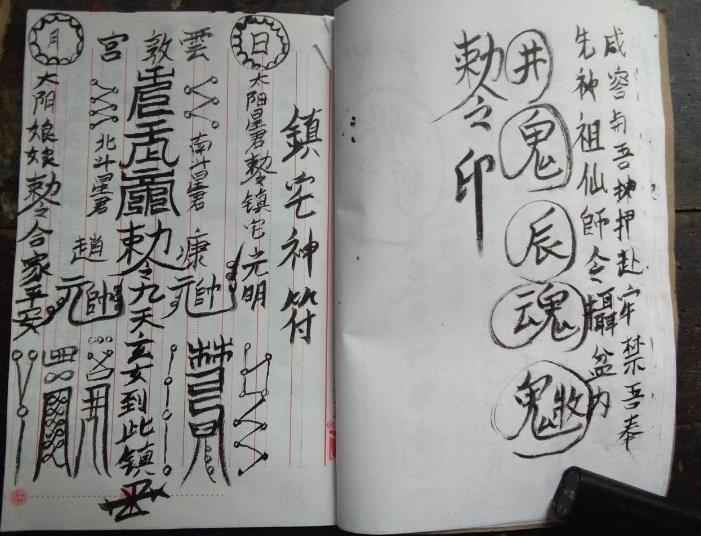 咸容与吾押赴牢禁吾奉
先神祖仙師令攝盆内
井鬼
辰
魂
鬼
勅令印
鎮宅神符
日
太阳星君勅令鎮宅光明
雲敦宮
南斗星君
康元帥
勅令九天玄女到此鎮宅
北斗星君
趙元帥
月
太阳娘娘勅令合家平安